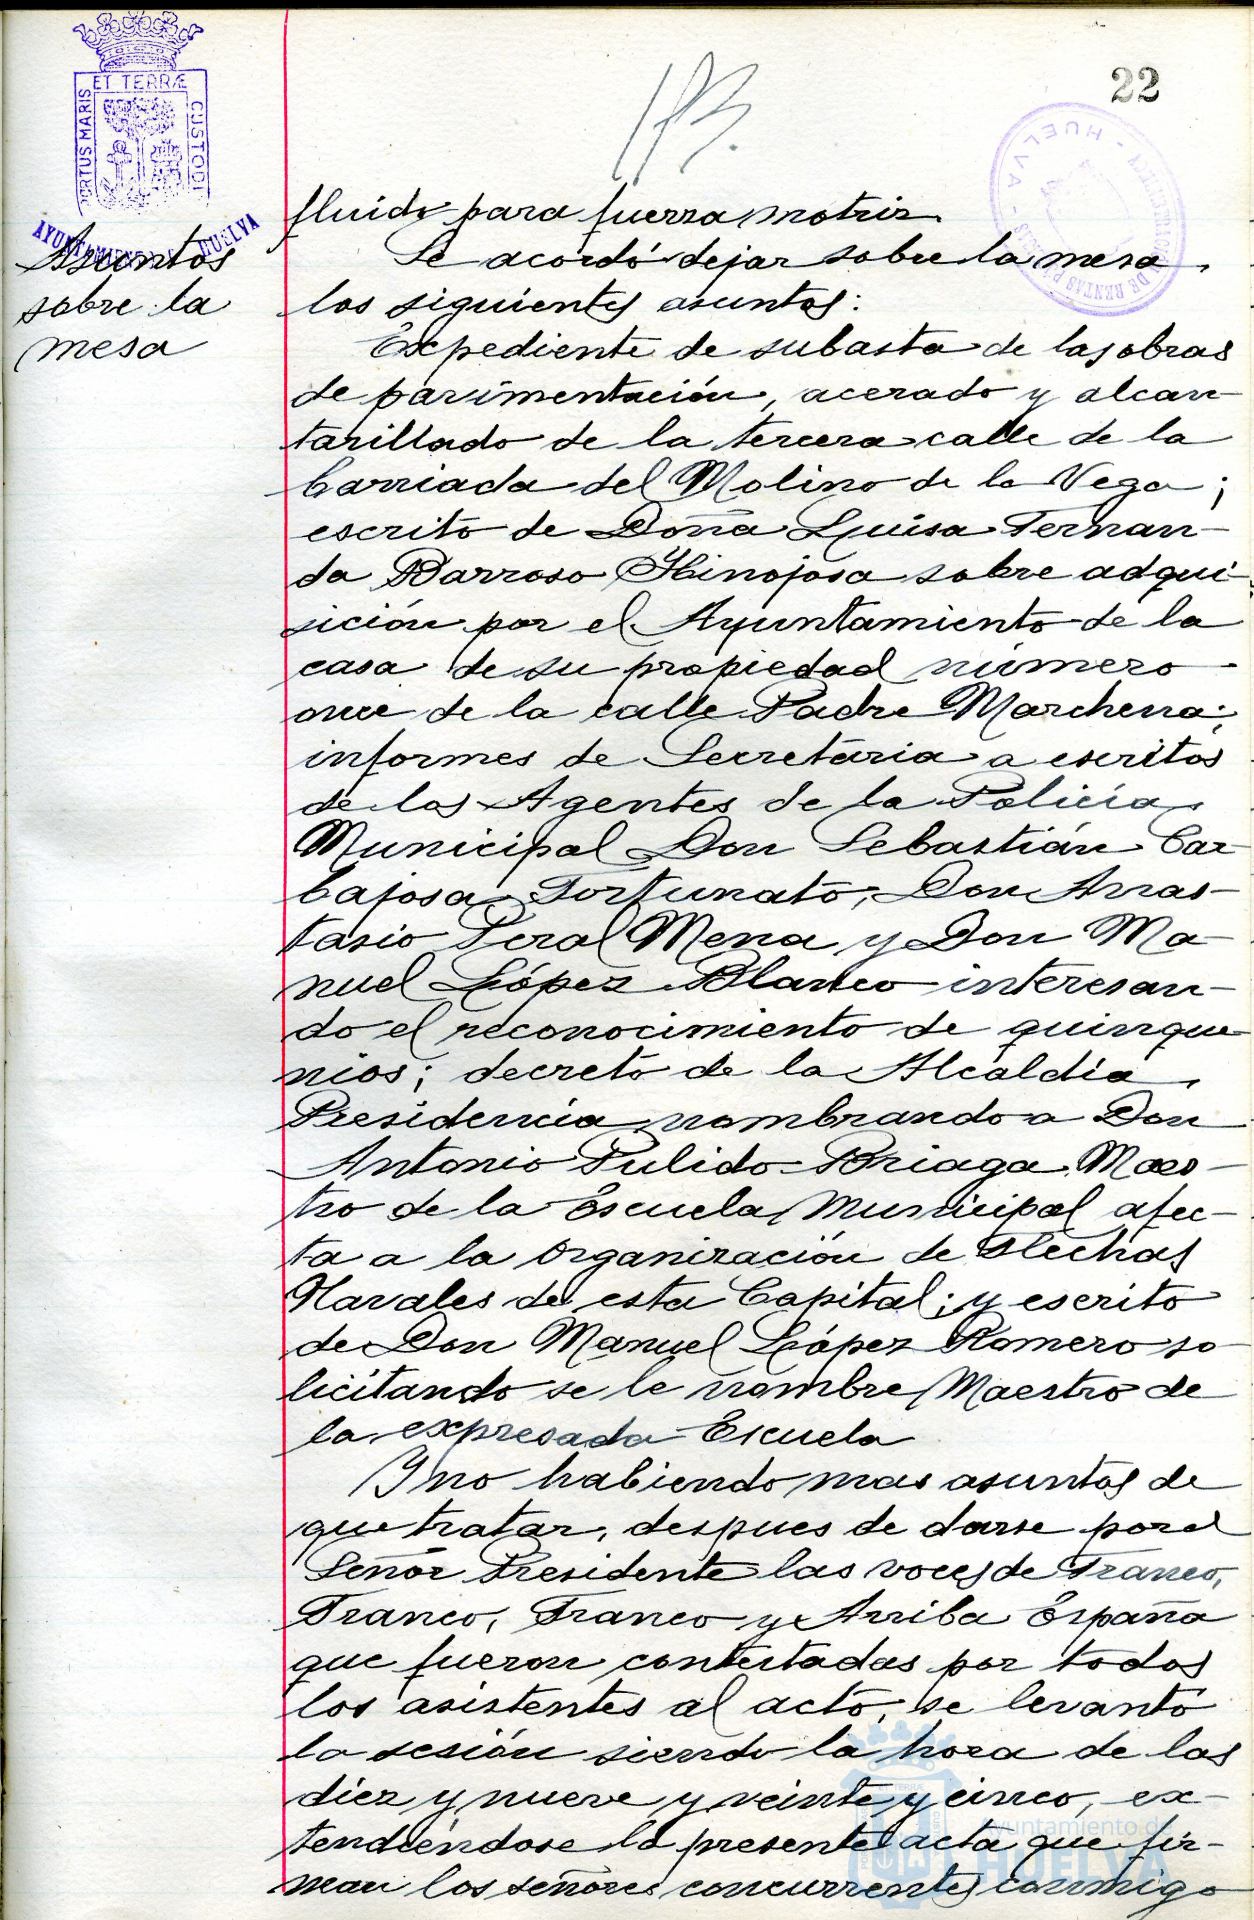 22
ET TERRÆ
PORTUS MARIS
CUSTODI
AYUNTAMIENTO DE HUELVA
HUELVA
Asuntos
sobre la
mesa
fluido para fuerza motriz.
Se acordó dejar sobre la mesa
los siguientes asuntos:
Expediente de subasta de las obras
de pavimentación, acerado y alcan-
tarillado de la tercera calle de la
barriada del Molino de la Vega;
escrito de Doña Luisa Fernan-
da Barroso Hinojosa sobre adqui-
sición por el Ayuntamiento de la
casa de su propiedad número
once de la calle Padre Marchena;
informes de Secretaria a escritos
de los Agentes de la Policía
Municipal Don Sebastián Car-
bajosa Fortunato, Don Anas-
tasio Peral Mena y Don Ma-
nuel López Blanco interesan-
do el reconocimiento de quinque-
nios; decreto de la Alcaldía
Presidencia nombrando a Don
Antonio Pulido Briaga Maes-
tro de la Escuela Municipal afec-
ta a la Organización de Flechas
Navales de esta Capital; y escrito
de Don Manuel López Romero so-
licitando se le nombre Maestro de
la expresada Escuela
Y no habiendo mas asuntos de
que tratar, despues de darse por el
Señor Presidente las voces de Franco,
Franco, Franco y Arriba España
que fueron contestadas por todos
los asistentes al acto, se levantó
la sesión siendo la hora de las
diez y nueve y veinte y cinco, ex-
tendiéndose la presente acta que fir-
man los señores concurrentes conmigo
Ayuntamiento de
HUELVA